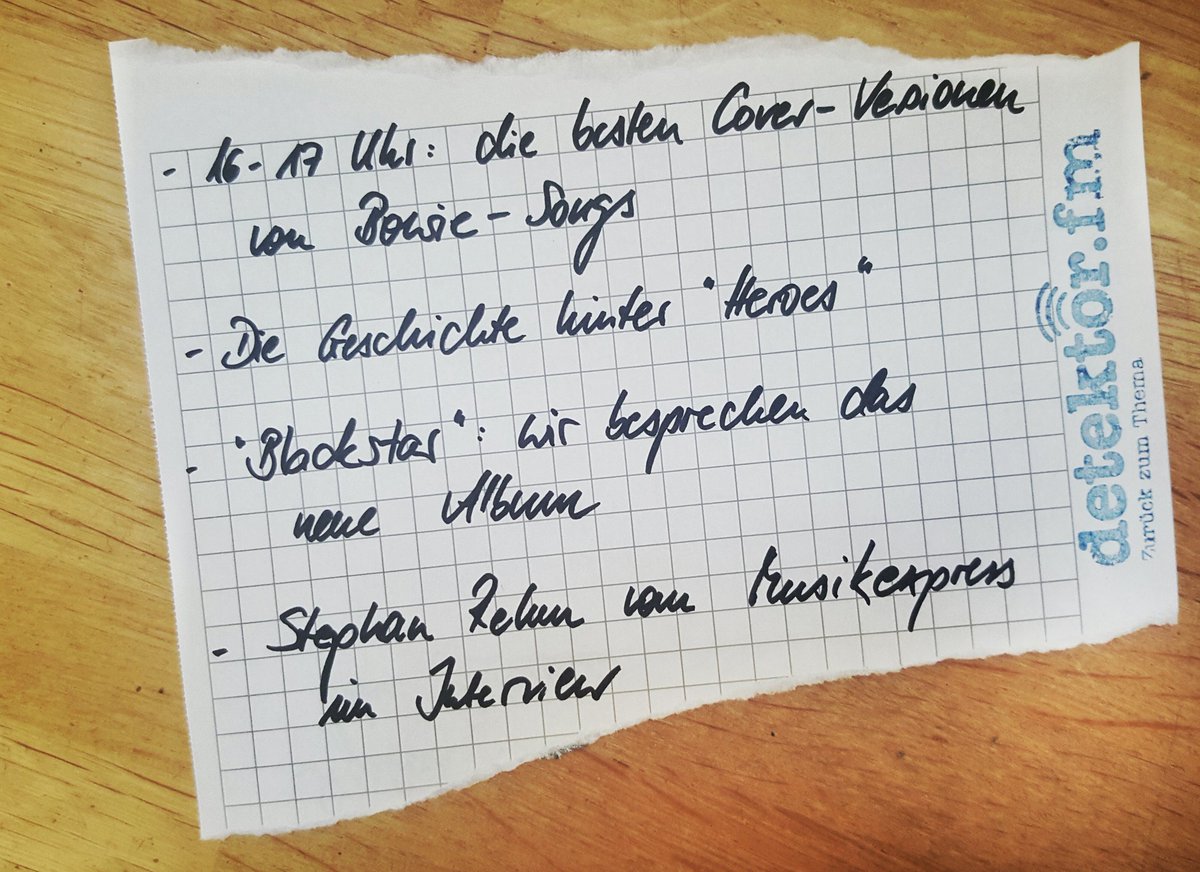 - 16-17 Uhr: die besten Cover-Versionen
von Bowie-Songs
- Die Geschichte hinter "Heroes"
- "Blackstar": wir besprechen das
neue Album
- Stephan Rehm vom Musikexpress
im Interview
detektor.fm
Zurück zum Thema